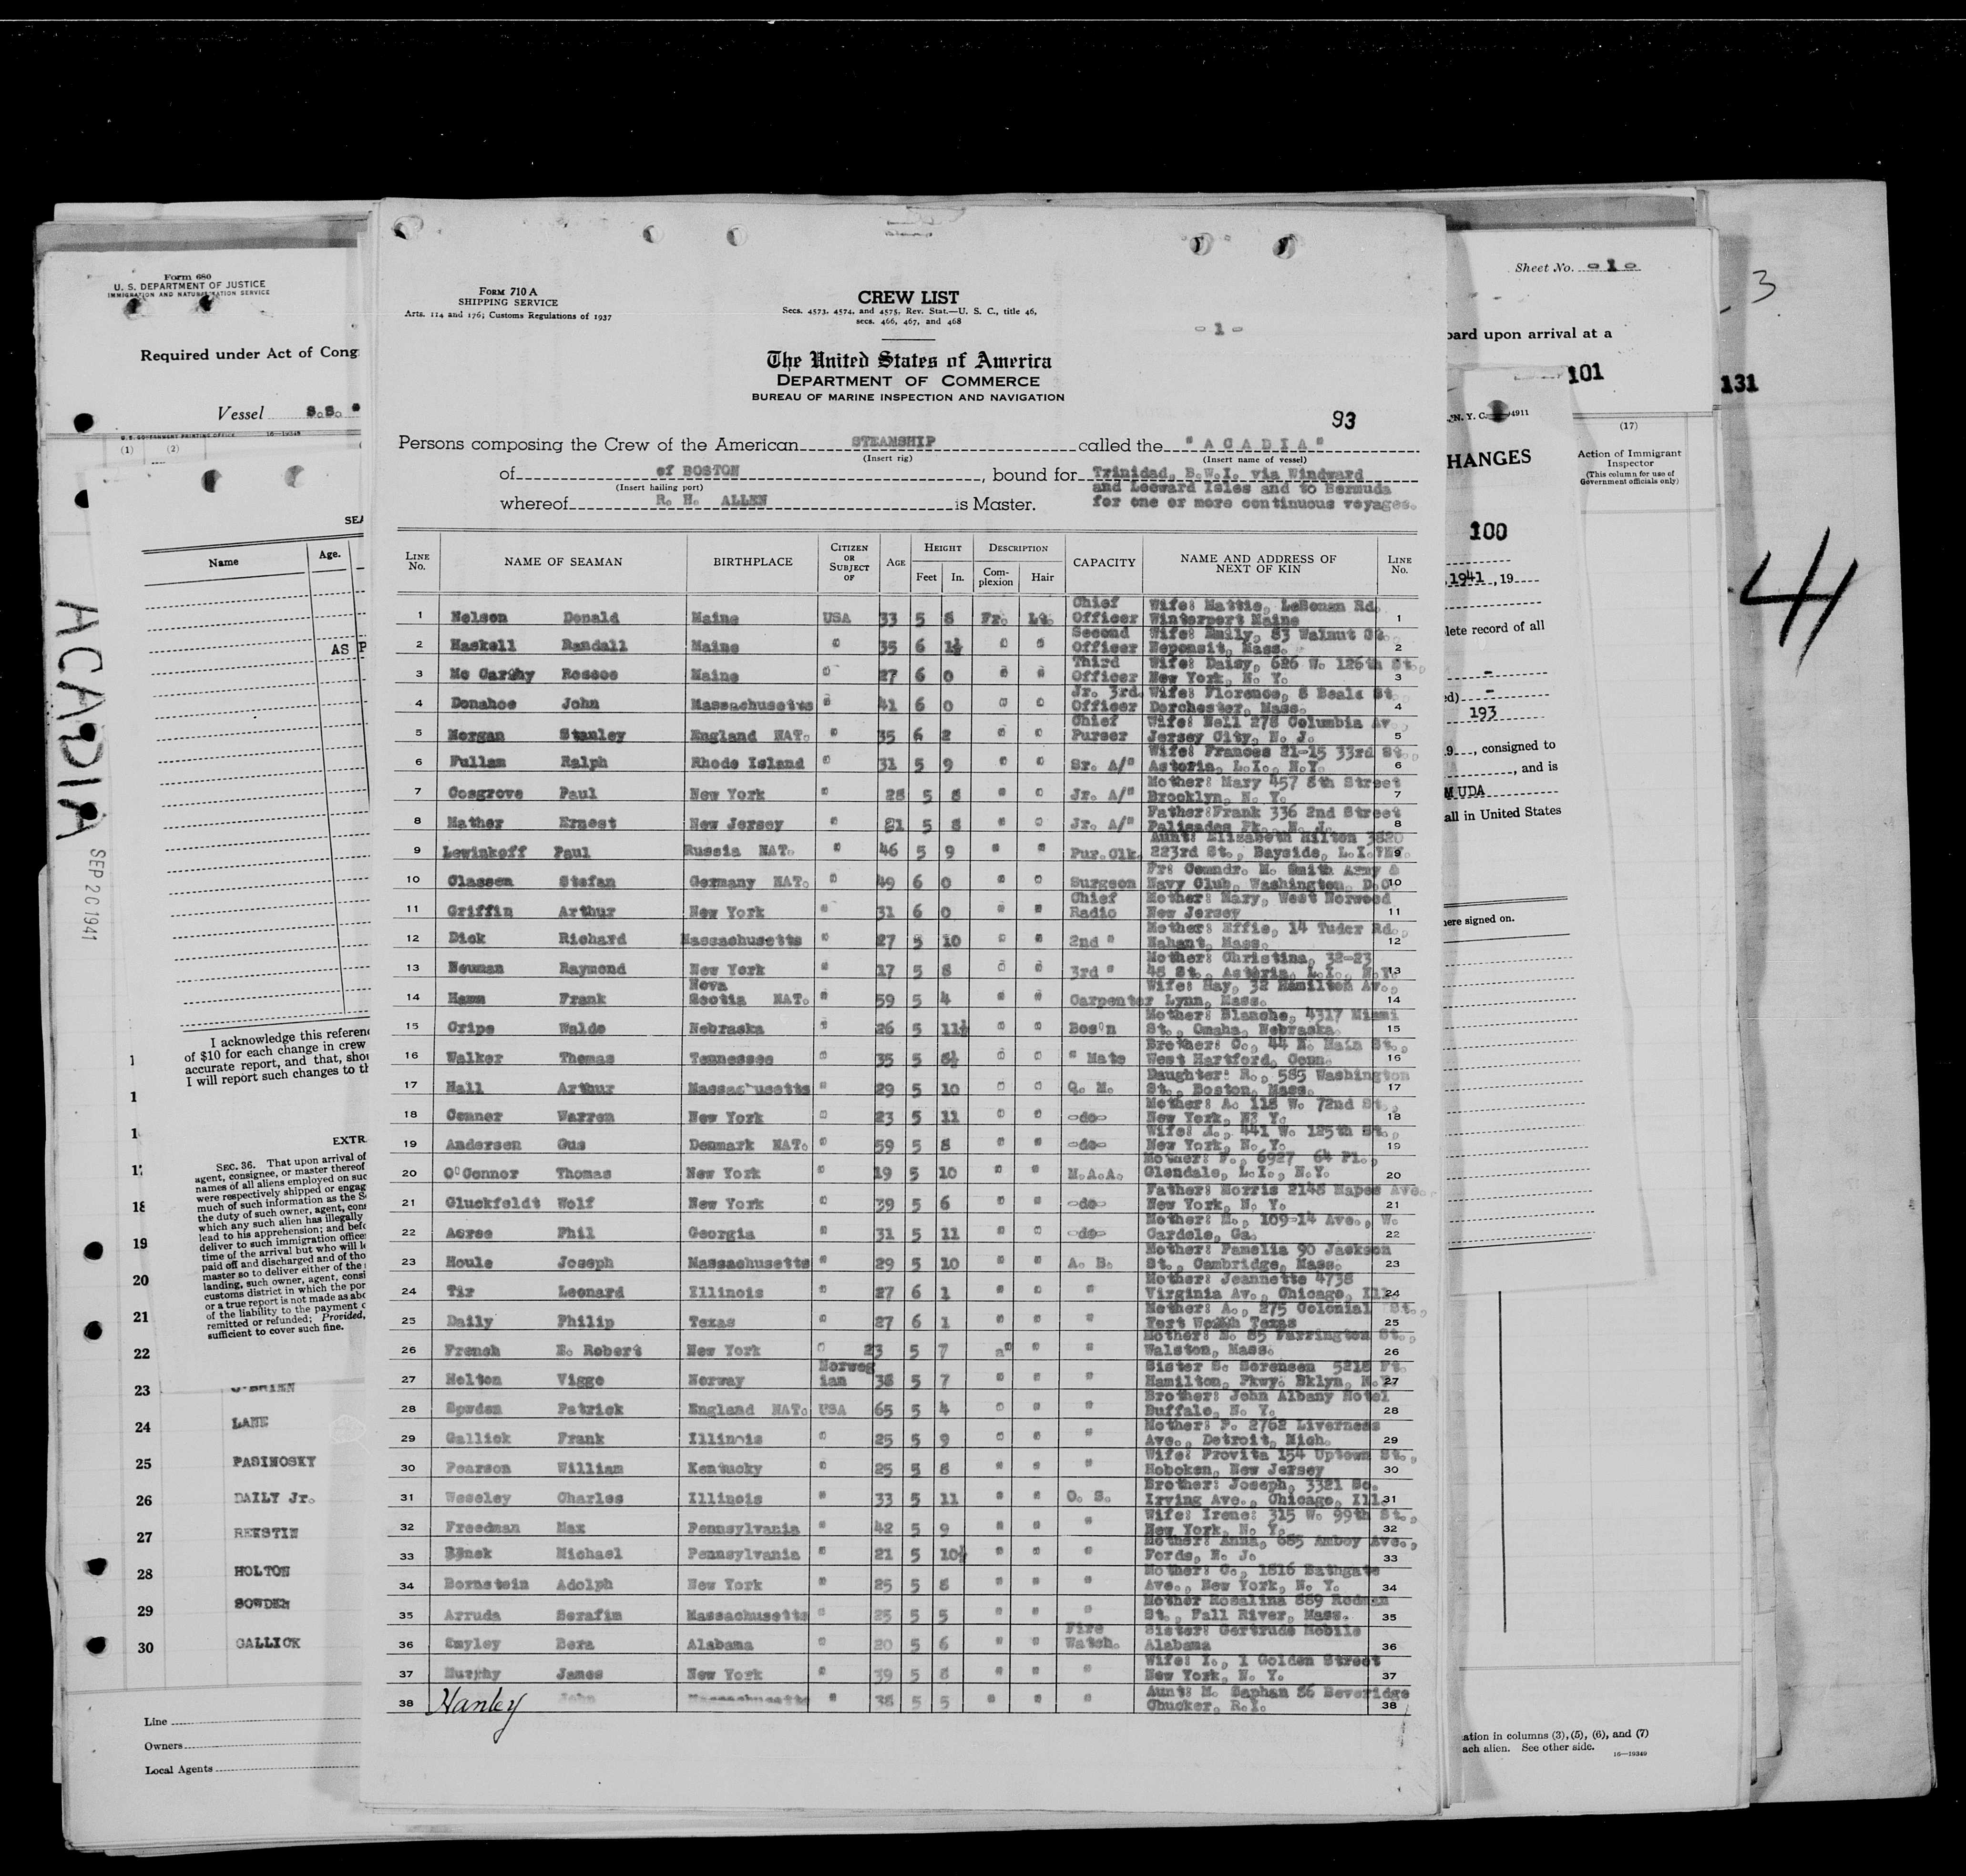 Form 680
U. S. DEPARTMENT OF JUSTICE
IMMIGRATION AND NATURALIZATION SERVICE
Required under Act of Cong
Vessel S.S. "
U.S. GOVERNMENT PRINTING OFFICE 16-19349
(1) (2)
SEA
Name Age.
AS P
ACADIA
SEP 20 1941
I acknowledge this referen
of $10 for each change in crew
accurate report, and that, shou
I will report such changes to th
EXTR
SEC. 36. That upon arrival of
agent, consignee, or master thereof
names of all aliens employed on suc
were respectively shipped or engag
much of such information as the S
the duty of such owner, agent, cons
which any such alien has illegally
lead to his apprehension; and befo
deliver to such immigration office
time of the arrival but who will l
paid off and discharged and of tho
master so to deliver either of the
landing, such owner, agent, consi
customs district in which the por
or a true report is not made as abo
of the liability to the payment o
remitted or refunded; Provided,
sufficient to cover such fine.
18
19
20
21
22
23 O'BRIEN
24 LANE
25 PASINOSKY
26 DAILY Jr.
27 REKSTIN
28 HOLTON
29 SOWDEN
30 GALLICK
Line
Owners
Local Agents
FORM 710 A
SHIPPING SERVICE
Arts. 114 and 176; Customs Regulations of 1937
CREW LIST
Secs. 4573, 4574, and 4575, Rev. Stat.—U. S. C., title 46,
secs. 466, 467, and 468
- 1 -
The United States of America
DEPARTMENT OF COMMERCE
BUREAU OF MARINE INSPECTION AND NAVIGATION
93
Persons composing the Crew of the American STEAMSHIP called the "ACADIA"
(Insert rig) (Insert name of vessel)
of of BOSTON, bound for Trinidad, B.W.I. via Windward
(Insert hailing port) and Leeward Isles and to Bermuda
whereof R. H. ALLEN is Master. for one or more continuous voyages.
LINE No. NAME OF SEAMAN BIRTHPLACE CITIZEN OR SUBJECT OF AGE HEIGHT Feet In. DESCRIPTION Complexion Hair CAPACITY NAME AND ADDRESS OF NEXT OF KIN LINE No.
1 Nelson Donald Maine USA 33 5 8 Fr. Lt. Chief Officer Wife: Mattie, Rd. Winterport Maine 1
2 Haskell Randall Maine " 35 6 1½ " " Second Officer Wife: Emily, 83 Walnut St. Neponsit, Mass. 2
3 Mc Carthy Roscoe Maine " 27 6 0 " " Third Officer Wife: Daisy, 626 W. 126th St., New York, N. Y. 3
4 Donahoe John Massachusetts " 41 6 0 " " Jr. 3rd Officer Wife: Florence, 8 Beale St. Dorchester, Mass. 4
5 Morgan Stanley England NAT. " 35 6 2 " " Chief Purser Wife: Nell 278 Columbia Av. Jersey City, N. J. 5
6 Fullam Ralph Rhode Island " 31 5 9 " " Sr. A/" Wife: Frances 21-15 33rd St., Astoria, L.I., N.Y. 6
7 Cosgrove Paul New York " 28 5 8 " " Jr. A/" Mother: Mary 457 8th Street Brooklyn, N. Y. 7
8 Mather Ernest New Jersey " 21 5 8 " " Jr. A/" Father:Frank 336 2nd Street Palisades Pk., N. J. 8
9 Lewinkoff Paul Russia NAT. " 46 5 9 " " Pur.Clk. Aunt: Elizabeth Hilton 3820 223rd St., Bayside, L.I. 9
10 Classen Stefan Germany NAT. " 49 6 0 " " Surgeon Fr: Comndr. M. Smith Army & Navy Club, Washington, D.C. 10
11 Griffin Arthur New York " 31 6 0 " " Chief Radio Mother: Mary, West Norwood New Jersey 11
12 Dick Richard Massachusetts " 27 5 10 " " 2nd " Mother: Effie, 14 Tudor Rd., Nahant, Mass. 12
13 Neuman Raymond New York " 17 5 8 " " 3rd " Mother: Christina, 32-23 48 St., Astoria, L.I., N.Y. 13
14 Hamm Frank Nova Scotia NAT. " 59 5 4 " " Carpenter Wife: May, 32 Hamilton Av., Lynn, Mass. 14
15 Cripe Waldo Nebraska " 26 5 11½ " " Bos'n Mother: Blanche, 4317 Miami St., Omaha, Nebraska 15
16 Walker Thomas Tennessee " 35 5 8½ " " " Mate Brother: C., 44 N. Main St., West Hartford, Conn. 16
17 Hall Arthur Massachusetts " 29 5 10 " " Q. M. Daughter: R., 585 Washington St., Boston, Mass. 17
18 Conner Warren New York " 23 5 11 " " -do- Mother: A. 118 W. 72nd St., New York, N. Y. 18
19 Andersen Gus Denmark NAT. " 59 5 8 " " -do- Wife: 441 W. 125th St., New York, N. Y. 19
20 O'Connor Thomas New York " 19 5 10 " " M.A.A. Mother: F., 6927 64 Pl., Glendale, L.I., N.Y. 20
21 Gluckfeldt Wolf New York " 39 5 6 " " -do- Father: Morris 2148 Mapes Ave. New York, N. Y. 21
22 Acree Phil Georgia " 31 5 11 " " -do- Mother: M., 109-14 Ave., W. Cardele, Ga. 22
23 Houle Joseph Massachusetts " 29 5 10 " " A. B. Mother: Pamelia 90 Jackson St., Cambridge, Mass. 23
24 Tir Leonard Illinois " 27 6 1 " " " Mother: Jeannette 4738 Virginia Av., Chicago, Ill. 24
25 Daily Philip Texas " 27 6 1 " " " Mother: A., 275 Colonial St., Fort Worth Texas 25
26 French E. Robert New York " 23 5 7 " " " Mother: M. 85 Farrington St., Walston, Mass. 26
27 Holton Viggo Norway Norwegian 38 5 7 " " " Sister S. Sorensen 5218 Ft. Hamilton, Pkwy. Bklyn, N.Y. 27
28 Sowden Patrick England NAT. USA 65 5 4 " " " Brother: John Albany Hotel Buffalo, N. Y. 28
29 Gallick Frank Illinois " 25 5 9 " " " Mother: F. 2762 Liverness Ave., Detroit, Mich. 29
30 Pearson William Kentucky " 25 5 8 " " " Wife: Provita 154 Uptown St., Hoboken, New Jersey 30
31 Weseley Charles Illinois " 33 5 11 " " O. S. Brother: Joseph, 3321 So. Irving Ave., Chicago, Ill. 31
32 Freedman Max Pennsylvania " 42 5 9 " " " Wife: Irene: 315 W. 99th St., New York, N. Y. 32
33 Michael Pennsylvania " 21 5 10½ " " " Mother: Anna, 685 Amboy Ave., Fords, N. J. 33
34 Bornstein Adolph New York " 25 5 8 " " " Mother: C., 1816 Bathgate Ave., New York, N. Y. 34
35 Arruda Serafim Massachusetts " 25 5 5 " " " Mother Rosalina 889 Rodman St., Fall River, Mass. 35
36 Smyley Bera Alabama " 20 5 6 " " Fire Watch. Sister: Gertrude Mobile Alabama 36
37 Murphy James New York " 39 5 8 " " " Wife: I., 1 Golden Street New York, N. Y. 37
38 Hanley John Massachusetts " 38 5 5 " " " Aunt: M. Saphan 86 Beveridge Chucker, R.I. 38
Sheet No. - 1 -
oard upon arrival at a
101
131
3
N. Y. C. 4911
HANGES
(17)
Action of Immigrant
Inspector
(This column for use of
Government officials only)
100
1941, 19
lete record of all
ed) -
193
9, consigned to
, and is
MUDA
all in United States
here signed on.
44
ation in columns (3), (5), (6), and (7)
ach alien. See other side.
16-19349